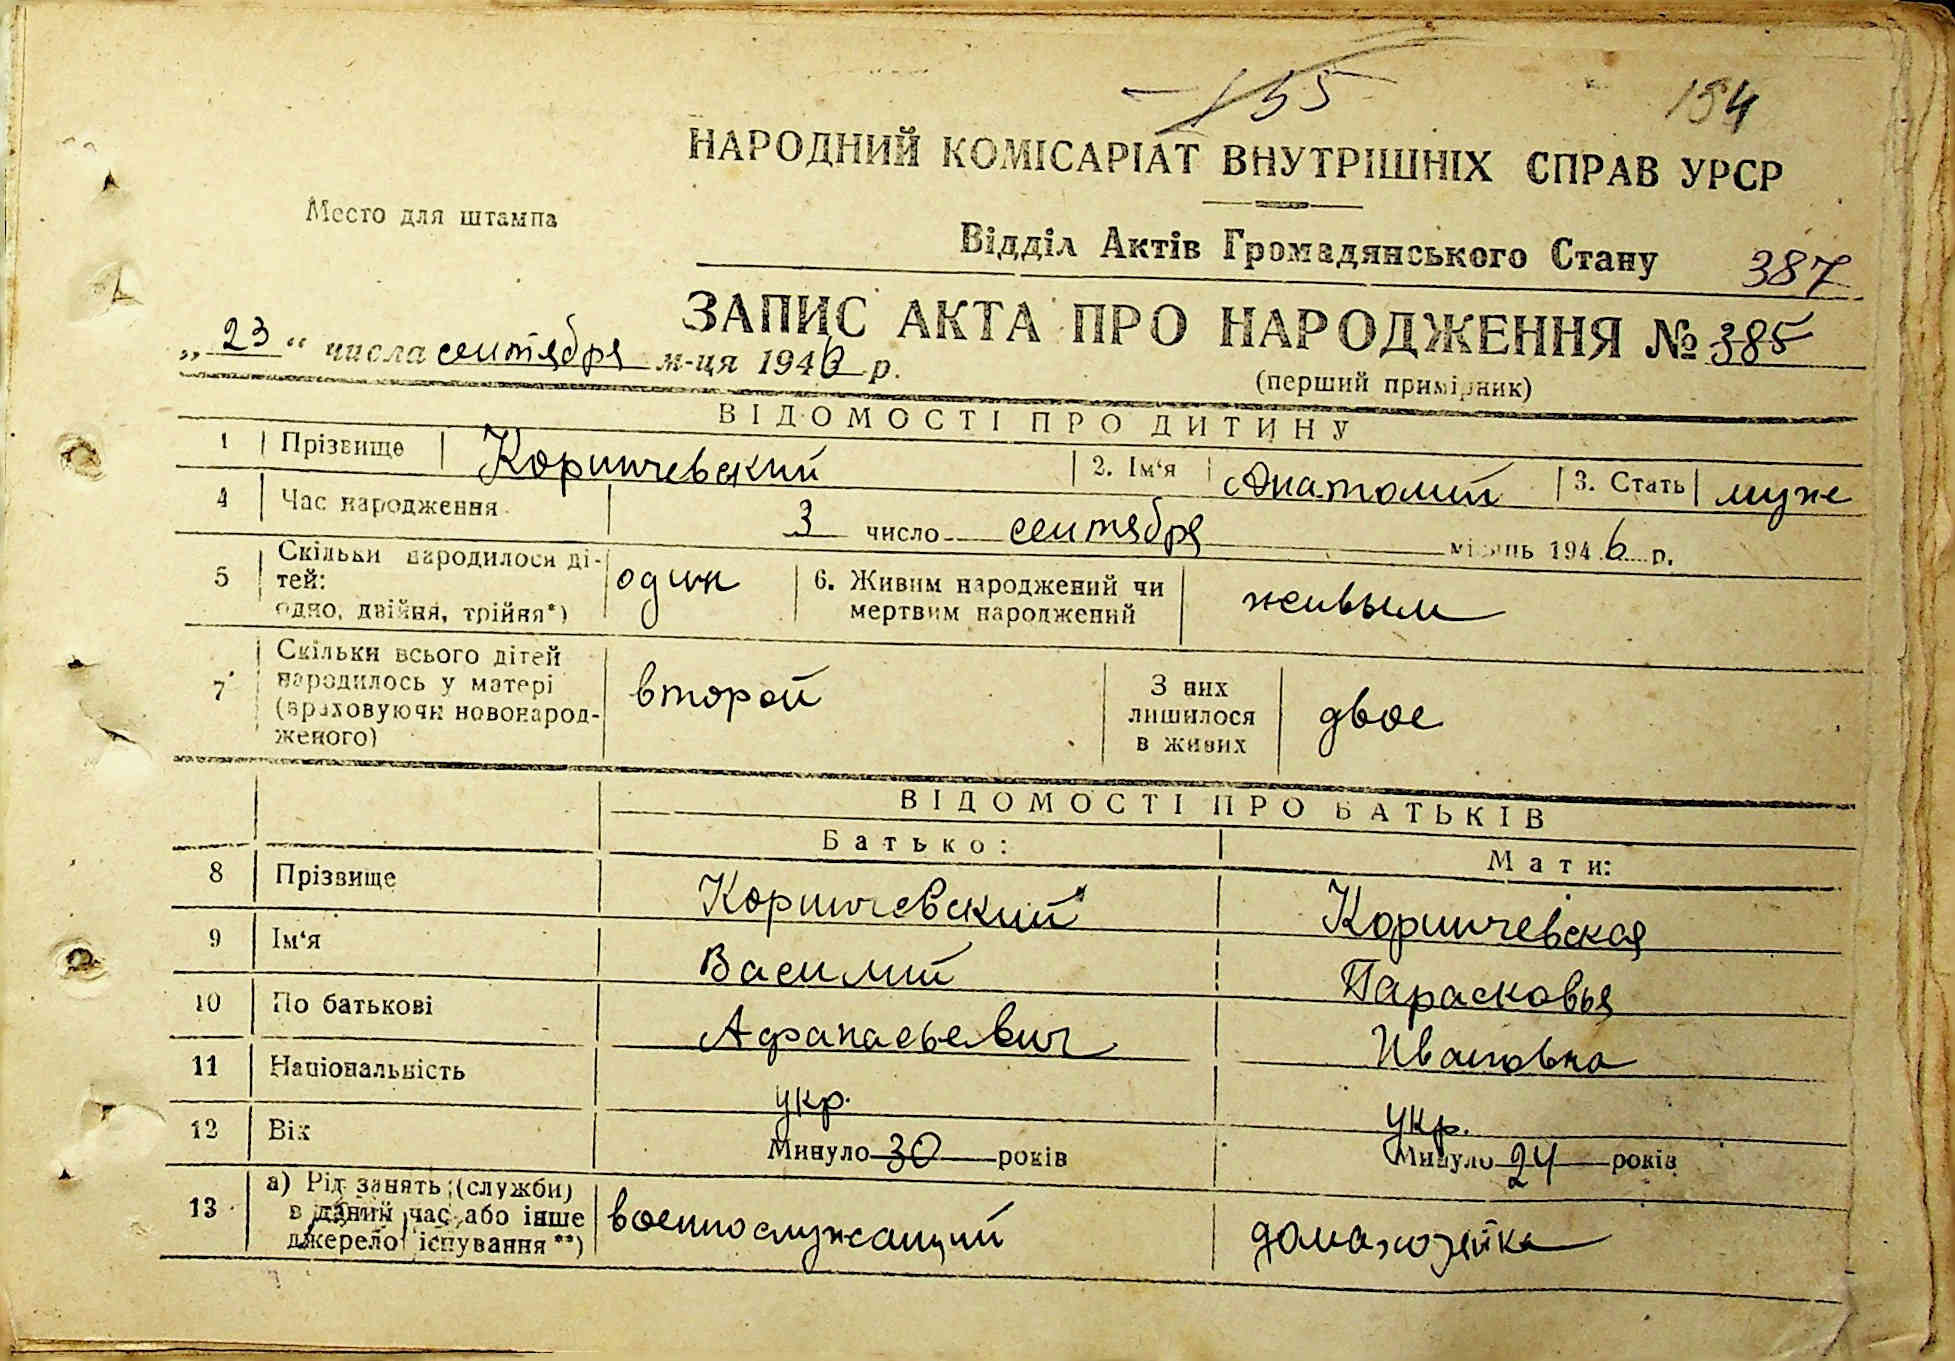 155
154
НАРОДНИЙ КОМІСАРІАТ ВНУТРІШНІХ СПРАВ УРСР
Место для штампа
Відділ Актів Громадянського Стану 387
ЗАПИС АКТА ПРО НАРОДЖЕННЯ № 385
„23“ числа сентября м-ця 1946 р.
(перший примірник)
ВІДОМОСТІ ПРО ДИТИНУ
1 Прізвище Коринчевский 2. Ім'я Анатолий 3. Стать муж
4 Час народження 3 число сентября місяць 1946 р.
5 Скільки народилося ді-
тей:
одно, двійня, трійня*) один 6. Живим народжений чи
мертвим народжений живым
7 Скільки всього дітей
народилось у матері
(враховуючи новонарод-
женого) второй З них
лишилося
в живих двое
ВІДОМОСТІ ПРО БАТЬКІВ
Батько: Мати:
8 Прізвище Коринчевский Коринчевская
9 Ім'я Василий Парасковья
10 По батькові Афанасьевич Ивановна
11 Національність укр. укр.
12 Вік Минуло 30 років Минуло 24 років
13 а) Рід занять (служби)
в даний час або інше
джерело існування**) военнослужащий домахозяйка